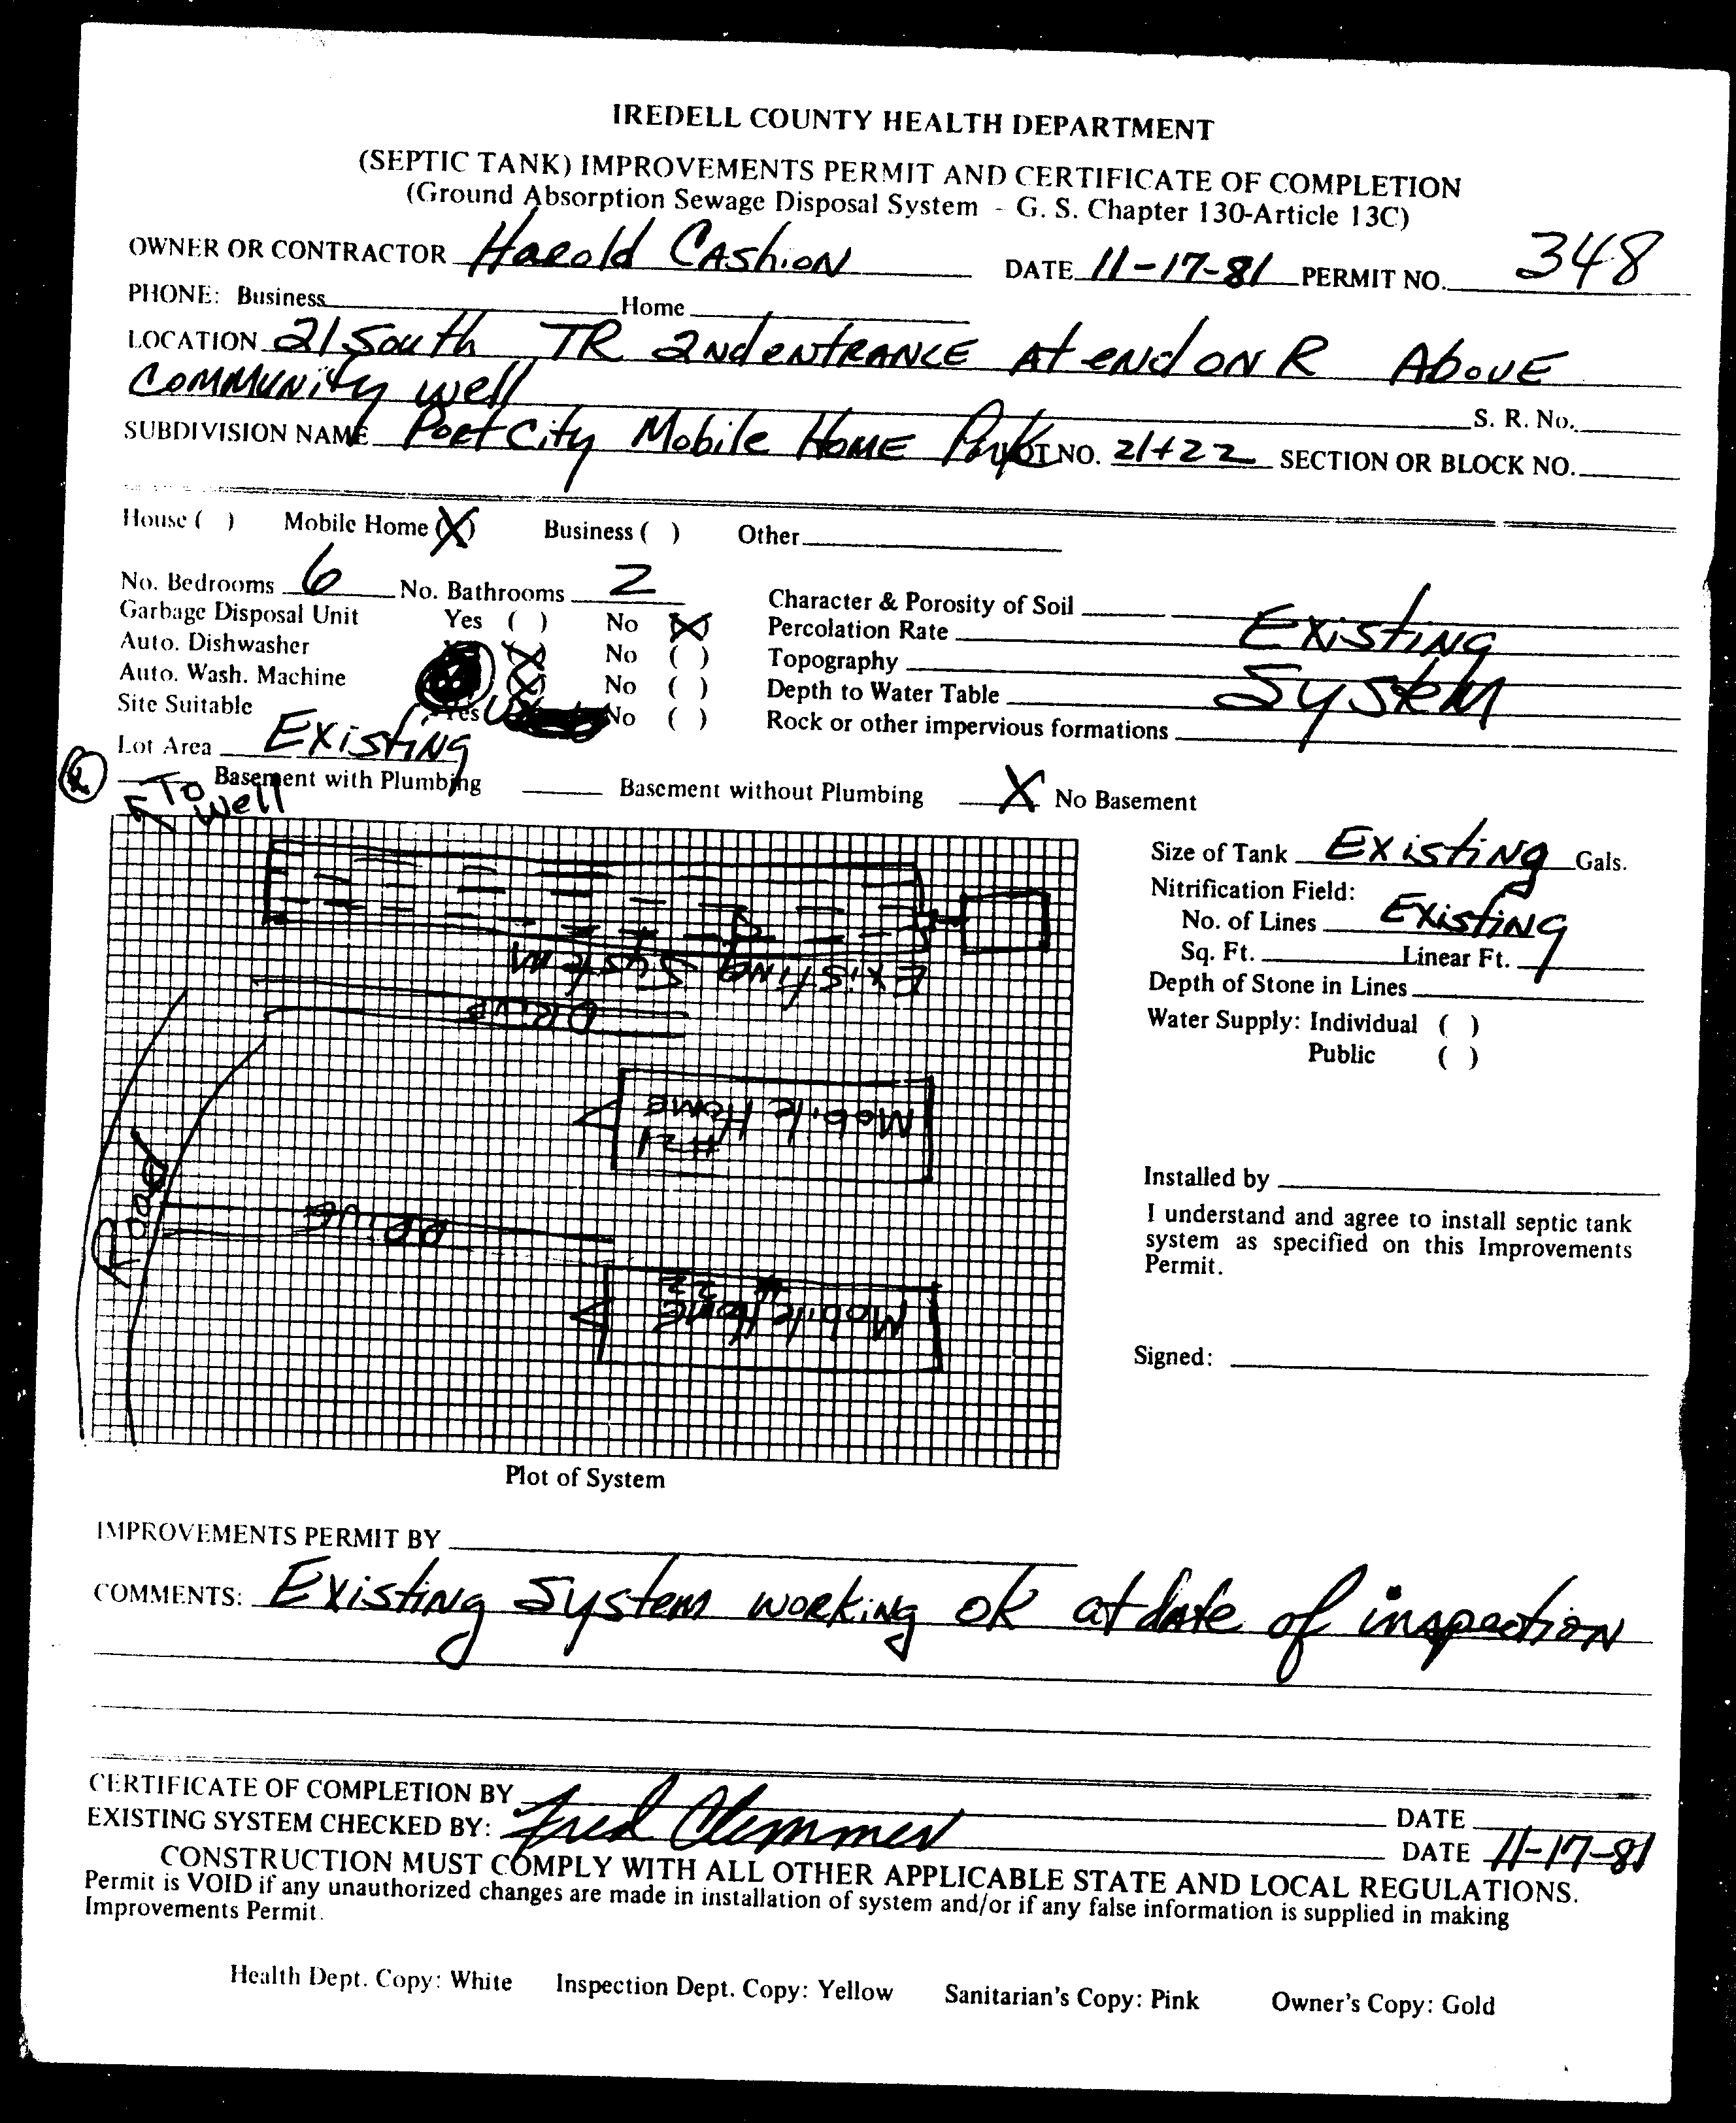 IREDELL COUNTY HEALTH DEPARTMENT
(SEPTIC TANK) IMPROVEMENTS PERMIT AND CERTIFICATE OF COMPLETION
(Ground Absorption Sewage Disposal System - G. S. Chapter 130-Article 13C)
OWNER OR CONTRACTOR Harold Cashion DATE 11-17-81 PERMIT NO. 348
PHONE: Business Home
LOCATION 21 South TR 2nd ENTRANCE At end ON R Above
Community well
S. R. No.
SUBDIVISION NAME Port City Mobile Home Park LOT NO. 21+22 SECTION OR BLOCK NO.
House ( ) Mobile Home (X) Business ( ) Other
No. Bedrooms 6 No. Bathrooms 2
Garbage Disposal Unit Yes ( ) No (X)
Auto. Dishwasher (X) No ( )
Auto. Wash. Machine (X) No ( )
Site Suitable Yes No ( )
Lot Area Existing
Character & Porosity of Soil
Percolation Rate Existing
Topography
Depth to Water Table System
Rock or other impervious formations
Basement with Plumbing Basement without Plumbing X No Basement
To
Well
Existing System
Drive
Mobile Home
#21
Road
Drive
# 22
Mobile Home
Plot of System
Size of Tank Existing Gals.
Nitrification Field:
No. of Lines Existing
Sq. Ft. Linear Ft.
Depth of Stone in Lines
Water Supply: Individual ( )
Public ( )
Installed by
I understand and agree to install septic tank
system as specified on this Improvements
Permit.
Signed:
IMPROVEMENTS PERMIT BY
COMMENTS: Existing System working ok at date of inspection
CERTIFICATE OF COMPLETION BY DATE
EXISTING SYSTEM CHECKED BY: Fred Clemmer DATE 11-17-81
CONSTRUCTION MUST COMPLY WITH ALL OTHER APPLICABLE STATE AND LOCAL REGULATIONS.
Permit is VOID if any unauthorized changes are made in installation of system and/or if any false information is supplied in making
Improvements Permit.
Health Dept. Copy: White Inspection Dept. Copy: Yellow Sanitarian's Copy: Pink Owner's Copy: Gold